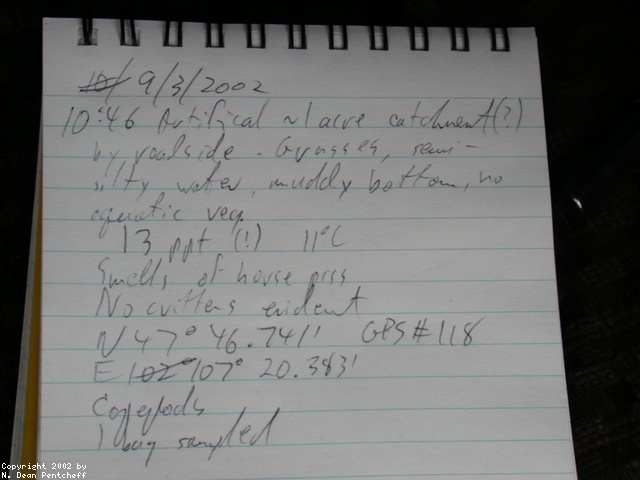 10/ 9/3/2002
10:46 Artifical ~1 acre catchment(?)
by roadside - Grasses, semi-
silty water, muddy bottom, no
aquatic veg.
13 ppt (!) 11°C
Smells of horse piss
No critters evident
N 47° 46.741' GPS#118
E 102° 107° 20.383'
Copepods
1 bag sampled
Copyright 2002 by
N. Dean Pentcheff